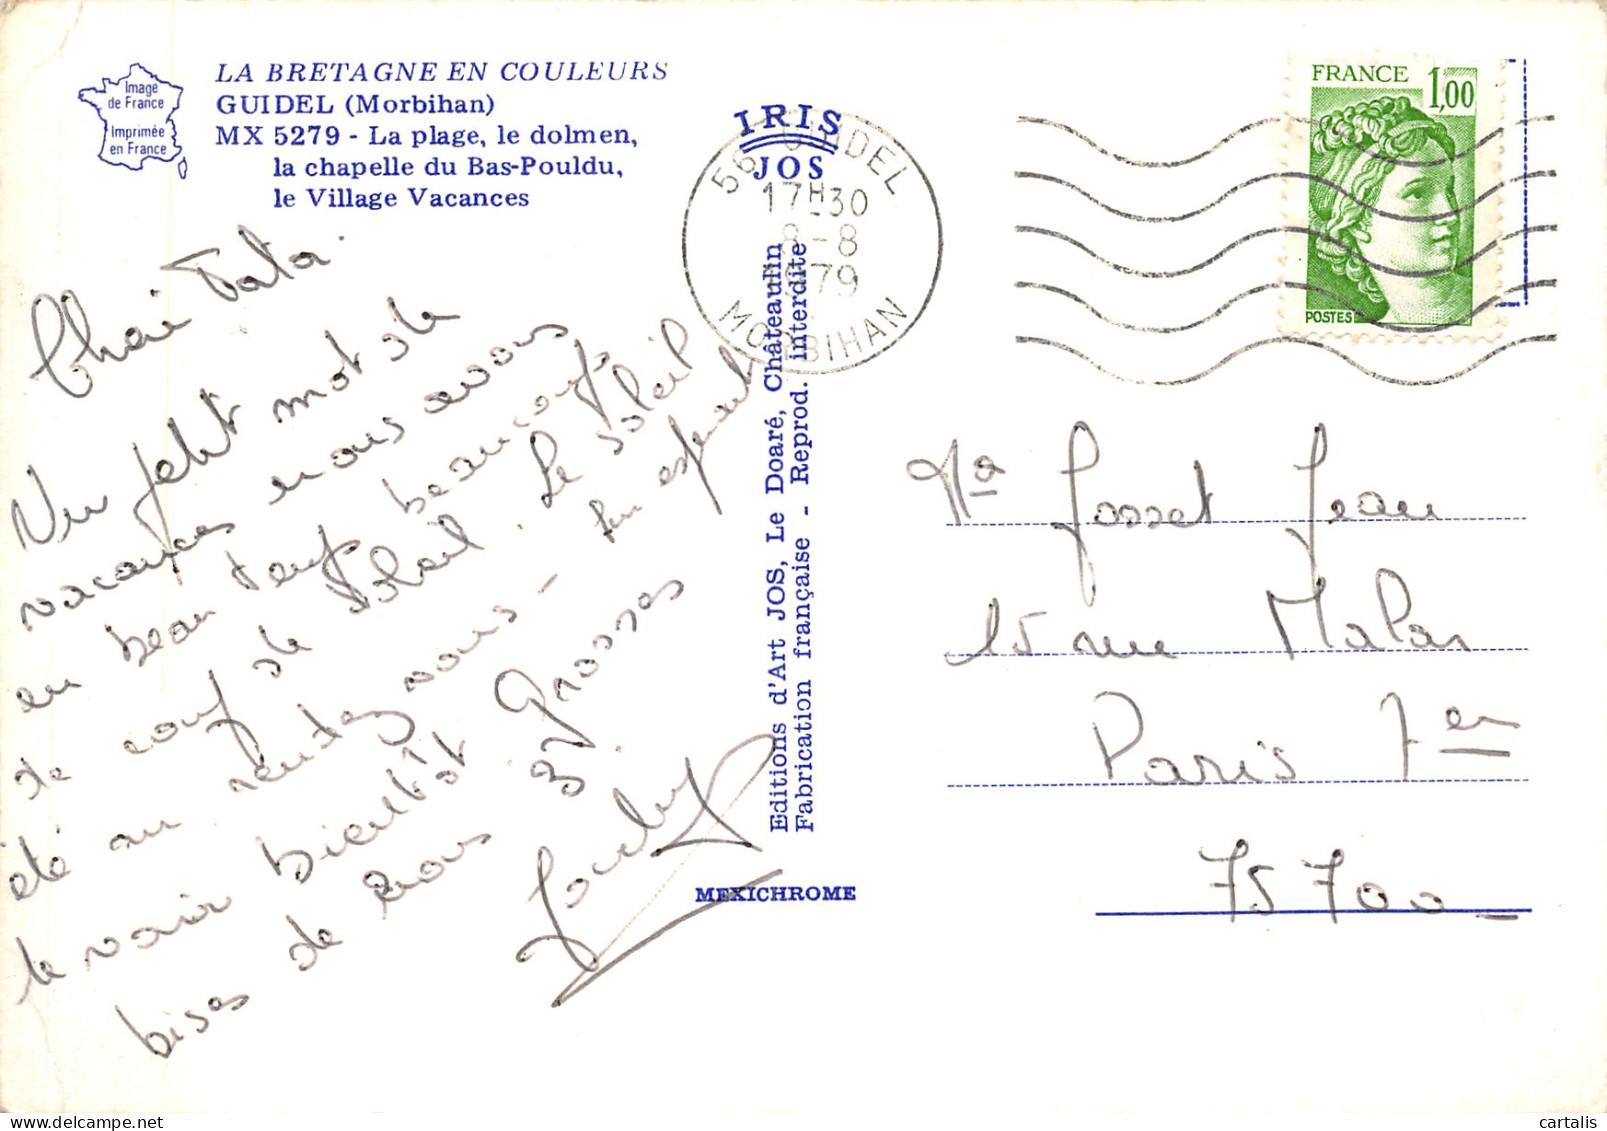 Image
de France
Imprimée
en France
LA BRETAGNE EN COULEURS
GUIDEL (Morbihan)
MX 5279 - La plage, le dolmen,
la chapelle du Bas-Pouldu,
le Village Vacances
IRIS
JOS
56 GUIDEL
17H30
8-8
1979
MORBIHAN
FRANCE 1,00
POSTES
Editions d'Art JOS, Le Doaré, Châteaulin
Fabrication française - Reprod. interdite
MEXICHROME
Tata
Un petit mot de
vacances nous avons
eu beau temps beaucoup
de coup de soleil. Le soleil
été au rendez vous - En espérant
te voir bientôt
bises de nous 3
grosses
Gosset Jean
15 rue Malar
Paris 7er
75700
MEXICHROME
cartalis